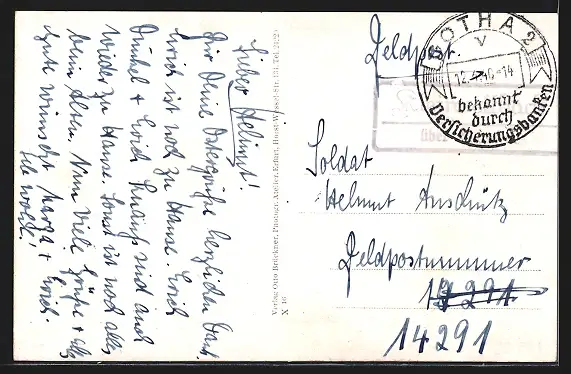 Lieber Helmut!
Für Deine Ostergrüße herzlichen Dank.
Erich ist noch zu Hause. Erich
Dunkel + Erich sind auch
wieder zu Hause. Sonst ist noch alles
beim Alten. Nun viele Grüße + alles
Gute wünscht Marga + Erich.
Leb wohl!
Verlag Otto Brückner, Photogr. Atelier, Erfurt, Horst-Wessel-Str.
X 16
Feldpost.
GOTHA 2
V
12.4.40-14
bekannt
durch
Versicherungsbanken
über
Soldat
Helmut Anschütz
Feldpostnummer
14291